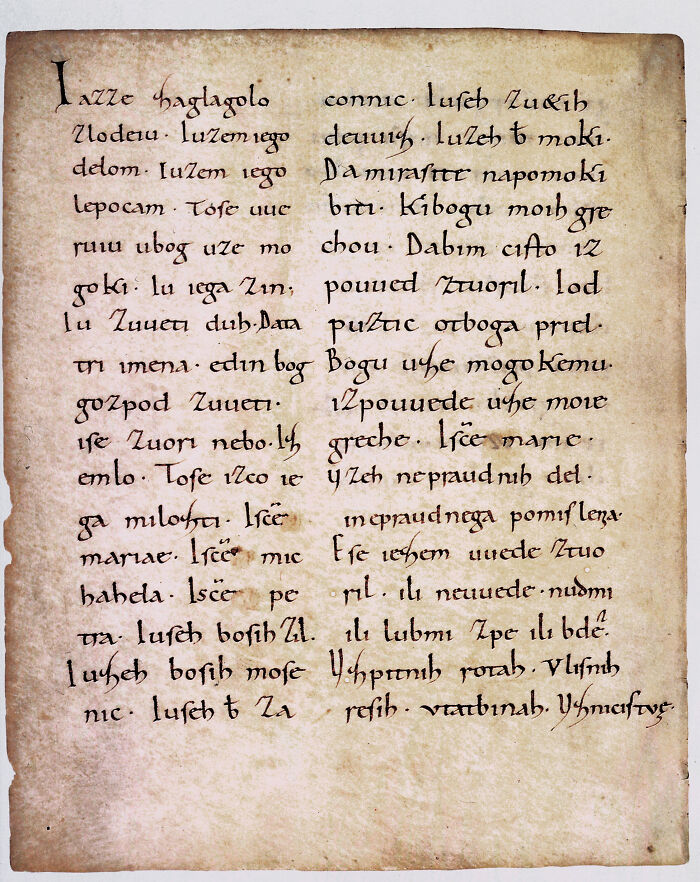 Iazze zaglagolo
zlodeiu · Iuzem iego
delom · Iuzem iego
lepocam · Tose uue
ruiu ubog uze mo
goki · Iu iega zin,
Iu zuueti duh · Data
tri imena · edin bog
gozpod zuueti ·
ise zuori nebo · Iz
emlo · Tose izco ie
ga milozti · Isc̃e
mariae · Isc̃e mic
hahela · Isc̃e pe
tra · Iuseh bosih zil ·
Iuzeh bosih mose
nic · Iuseh b̄ za
connic · Iuseh zu&ih
deuuiz · Iuzeh b̄ moki ·
Da mirasite napomoki
biti · Kibogu moih gre
chou · Dabim cisto iz
pouued ztuoril · Iod
puztic otboga priel ·
Bogu uze mogokemu ·
izpouuede uze moie
greche · Isc̃e marie ·
Vzeh nepraudnih del ·
inepraudnega pomislena ·
Ese iezem uuede ztuo
ril · ili neuuede · nudmi
ili lubmi zpe ili bde ·
Vzpitnih rotah · Vlisnih
resih · vtatbinah · Vznicistve ·